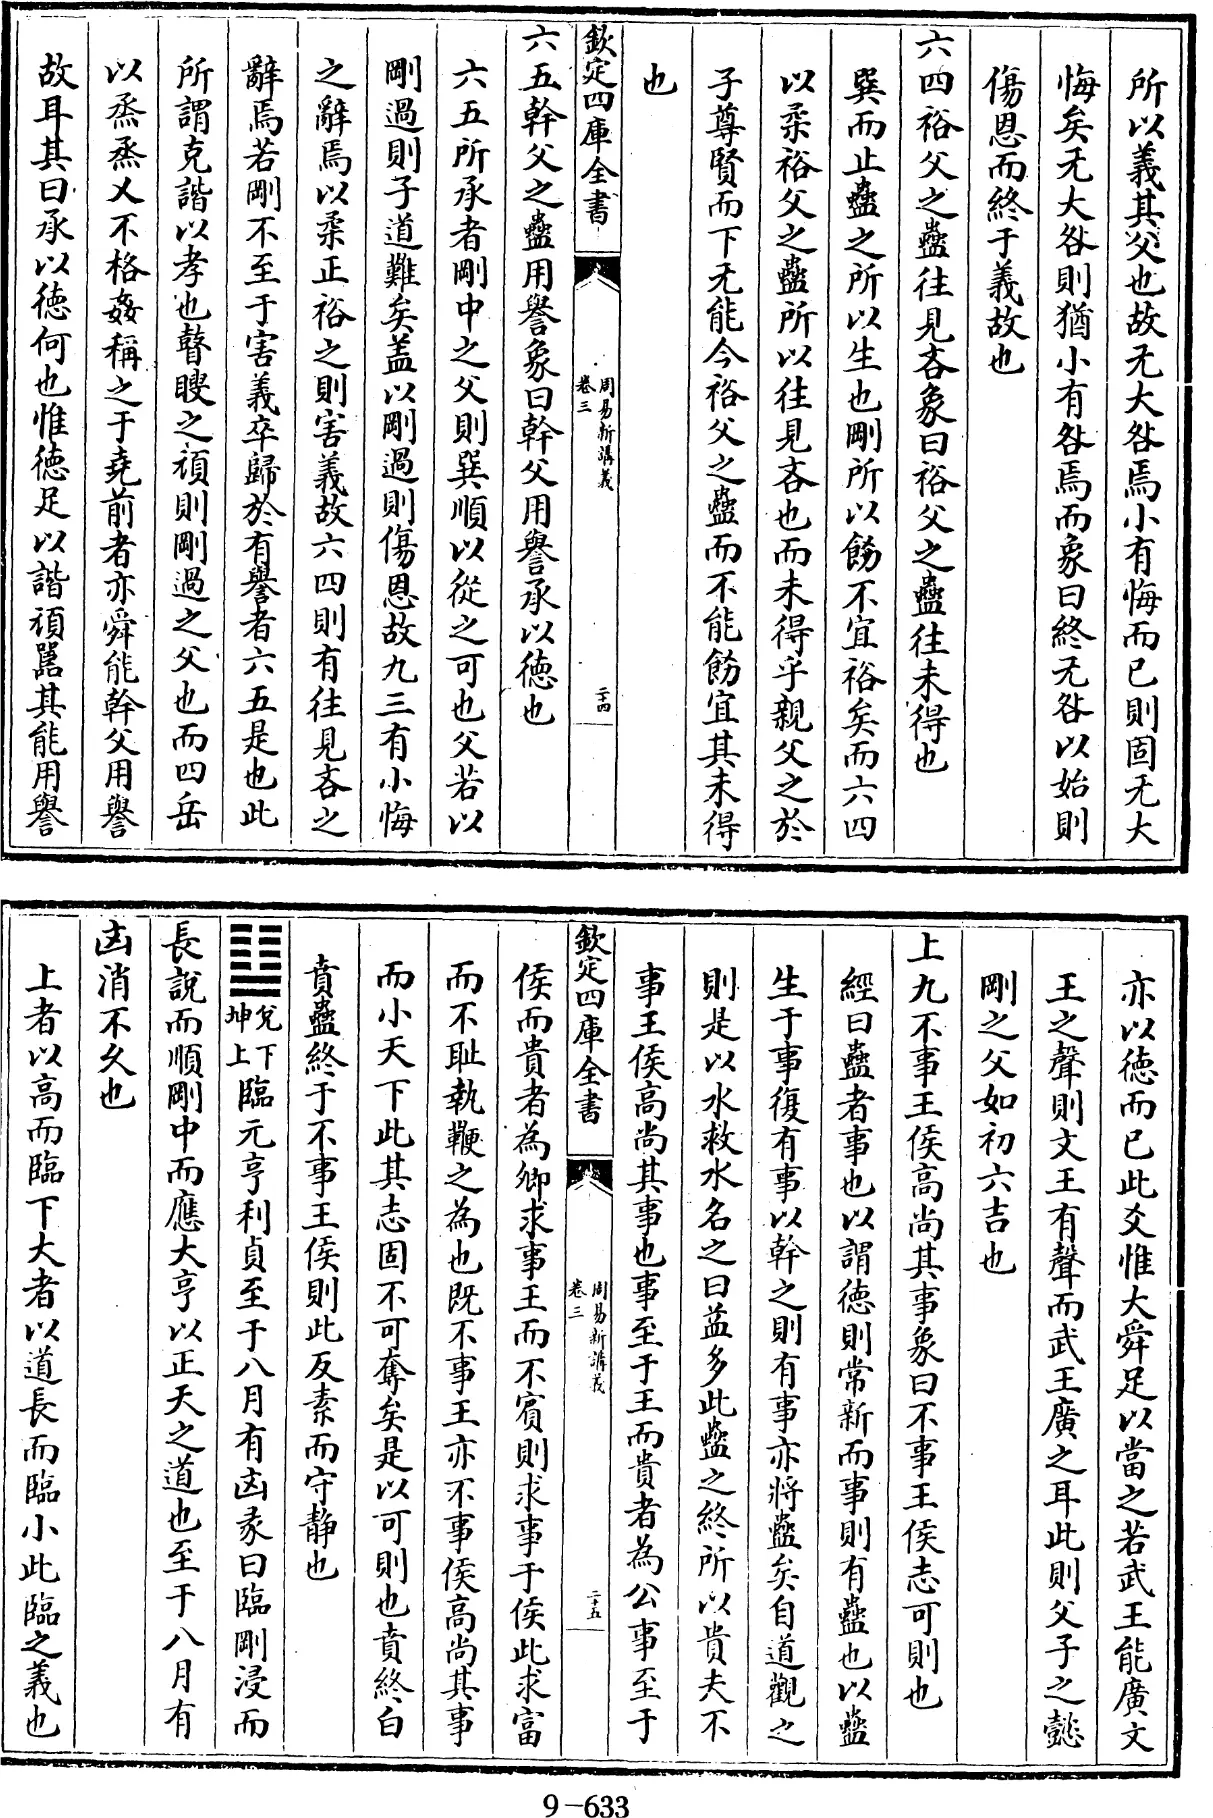 所以義其父也故无大咎焉小有悔而已則固无大
悔矣无大咎則猶小有咎焉而象曰終无咎以始則
傷恩而終于義故也
六四裕父之蠱往見吝象曰裕父之蠱往未得也
巽而止蠱之所以生也剛所以飭不宜裕矣而六四
以柔裕父之蠱所以往見吝也而未得乎親父之於
子尊賢而下无能今裕父之蠱而不能飭宜其未得
也
欽定四庫全書
周易新講義
卷三
二十四
六五幹父之蠱用譽象曰幹父用譽承以徳也
六五所承者剛中之父則巽順以從之可也父若以
剛過則子道難矣盖以剛過則傷恩故九三有小悔
之辭焉以柔正裕之則害義故六四則有往見吝之
辭焉若剛不至于害義卒歸於有譽者六五是也此
所謂克諧以孝也瞽瞍之頑則剛過之父也而四岳
以烝烝乂不格姦稱之于堯前者亦舜能幹父用譽
故耳其曰承以徳何也惟徳足以諧頑嚚其能用譽
亦以徳而已此爻惟大舜足以當之若武王能廣文
王之聲則文王有聲而武王廣之耳此則父子之懿
剛之父如初六吉也
上九不事王侯高尚其事象曰不事王侯志可則也
經曰蠱者事也以謂徳則常新而事則有蠱也以蠱
生于事復有事以幹之則有事亦將蠱矣自道觀之
則是以水救水名之曰益多此蠱之終所以貴夫不
事王侯高尚其事也事至于王而貴者為公事至于
欽定四庫全書
周易新講義
卷三
二十五
侯而貴者為卿求事王而不賔則求事于侯此求富
而不耻執鞭之為也既不事王亦不事侯高尚其事
而小天下此其志固不可奪矣是以可則也賁終白
賁蠱終于不事王侯則此反素而守静也
䷒兌下坤上臨元亨利貞至于八月有凶彖曰臨剛浸而
長說而順剛中而應大亨以正天之道也至于八月有
凶消不久也
上者以高而臨下大者以道長而臨小此臨之義也
9-633